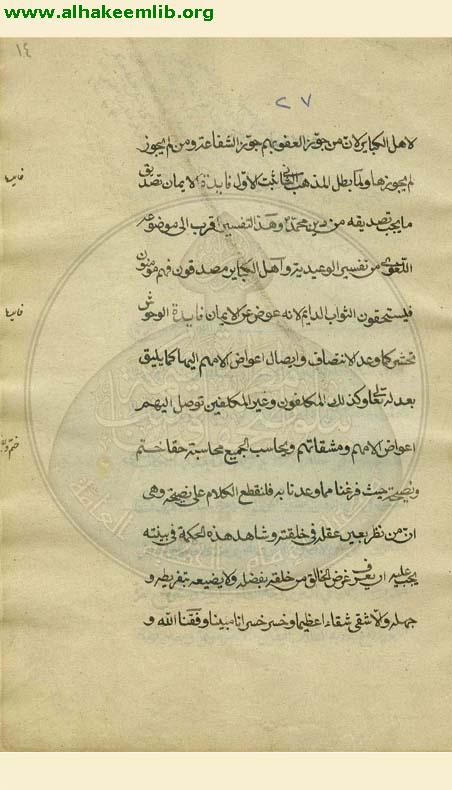 www.alhakeemlib.org
١٤
٢٧
لاهل الكبائر لان من جوّز العفو بهم جوّز الشفاعة ومن لم يجوز
لم يجوزها ولما بطل المذهب الثاني ثبت الاول فايدة الايمان تصديق
فايدة
ما يجب تصديقه من دين محمد وهذا التفسير اقرب الى موضوعه
اللغوي من تفسير الوعيدية واهل الكباير مصدقون فهم مؤمنون
فيستحقون الثواب الدايم لانه عوض عن الايمان فايدة الوحوش
فايدة
تحشر كما وعد للانتصاف وايصال اعواض الامهم اليها كما يليق
بعدله تعالى وكذلك المكلفون وغير المكلفين توصل اليهم
اعواض الامهم ومشقاتهم ويحاسب الجميع محاسبة حقا ختم
ونصيحة حيث فرغنا مما وعدنا به فلنقطع الكلام على نصيحة وهى
ان من نظر بعين عقله في خلقته وشاهد هذه الحكمة في بينته
يجب عليه ان يعرف غرض الخالق من خلقه بفضله ولا يضيعه بتفريطه و
جهله ولا شقى شقاء عظيما وخسر خسرانا مبينا وفقنا الله و